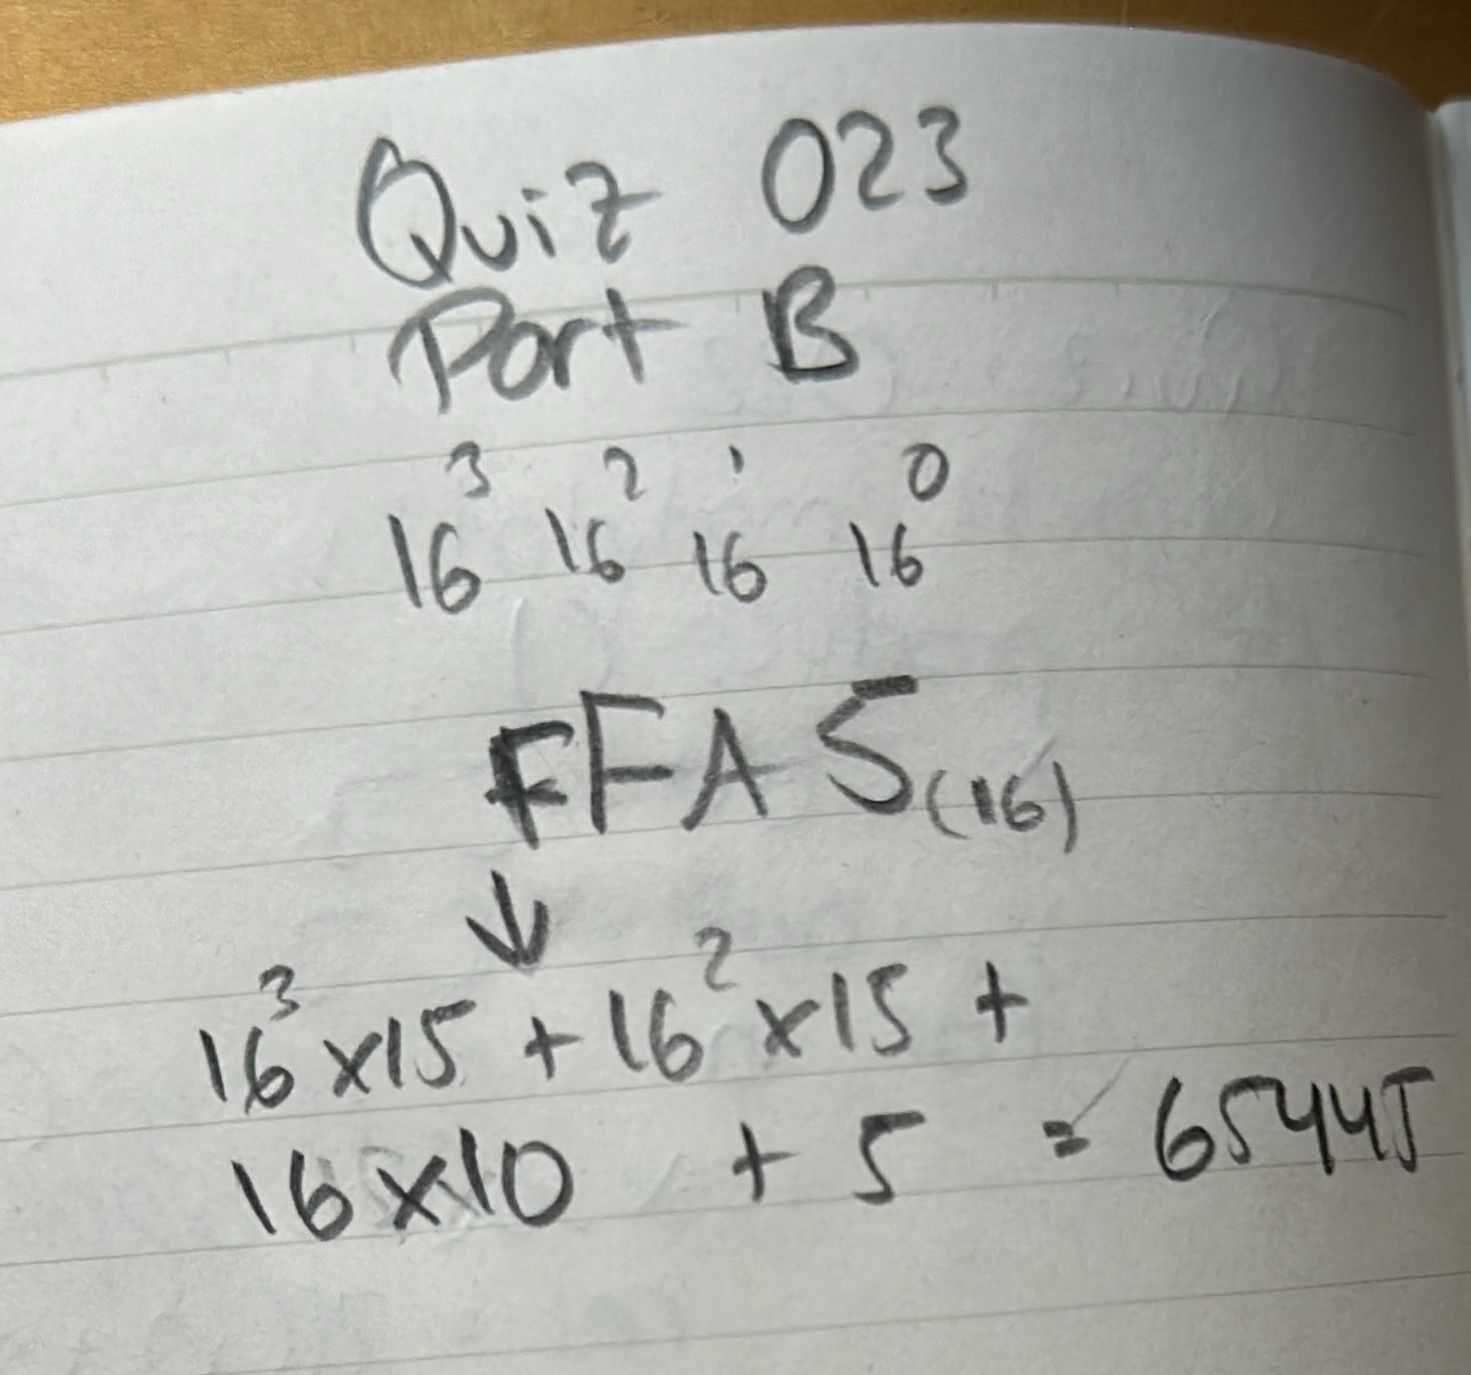 Quiz 023
Part B
16³ 16² 16¹ 16⁰
FFA5₍₁₆₎
↓
16³×15 + 16²×15 +
16×10 + 5 = 65445